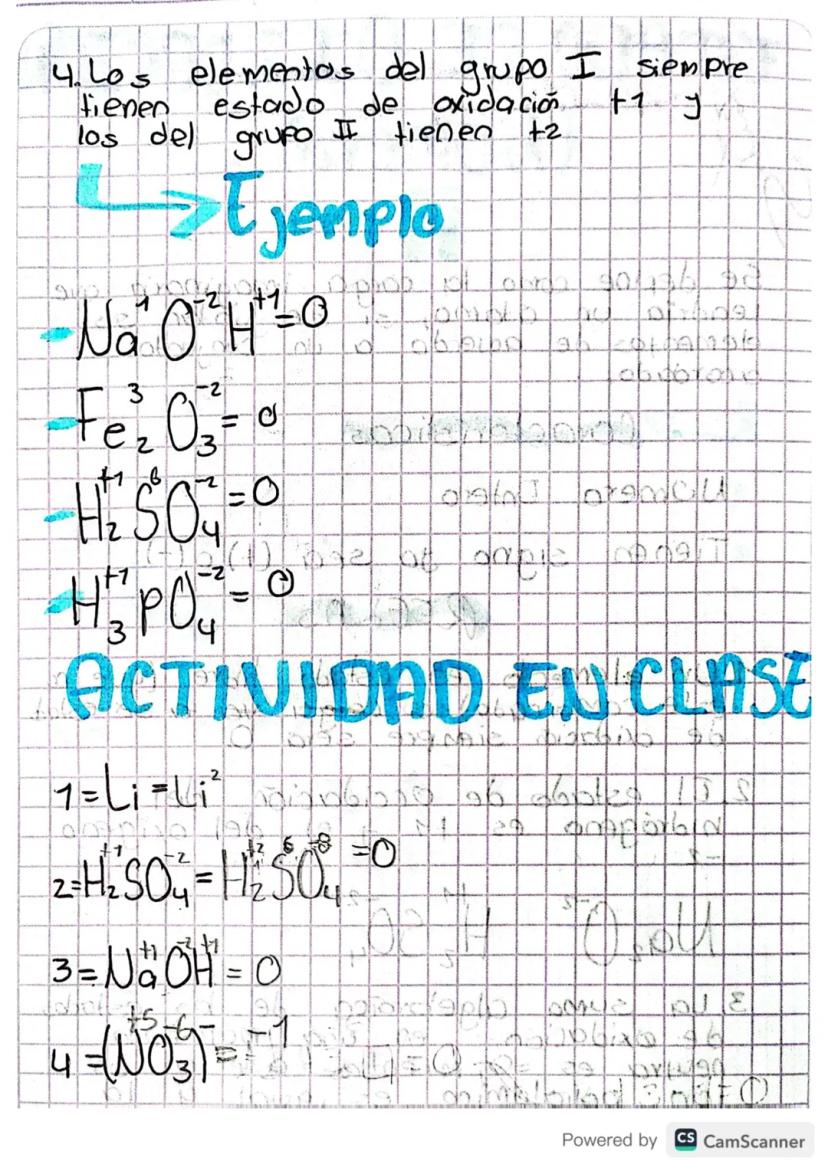 4. Los elementos del grupo I siempre
tienen estado de oxidación +1 y
los del grupo II tienen +2
Ejemplo
- Na¹ O⁻² H⁺¹ = 0
- Fe₂³ O₃⁻² = 0
- H₂⁺¹ S⁶ O₄⁻² = 0
- H₃⁺¹ PO₄⁻² = 0
ACTIVIDAD EN CLASE
1 = Li = Li²
2 = H₂⁺¹SO₄⁻² = H₂⁺² S⁶ O₄⁻⁸ = 0
3 = Na⁺¹O⁻²H⁺¹ = 0
4 = (N⁺⁵O₃⁻⁶)⁻ = -1
Powered by CS CamScanner